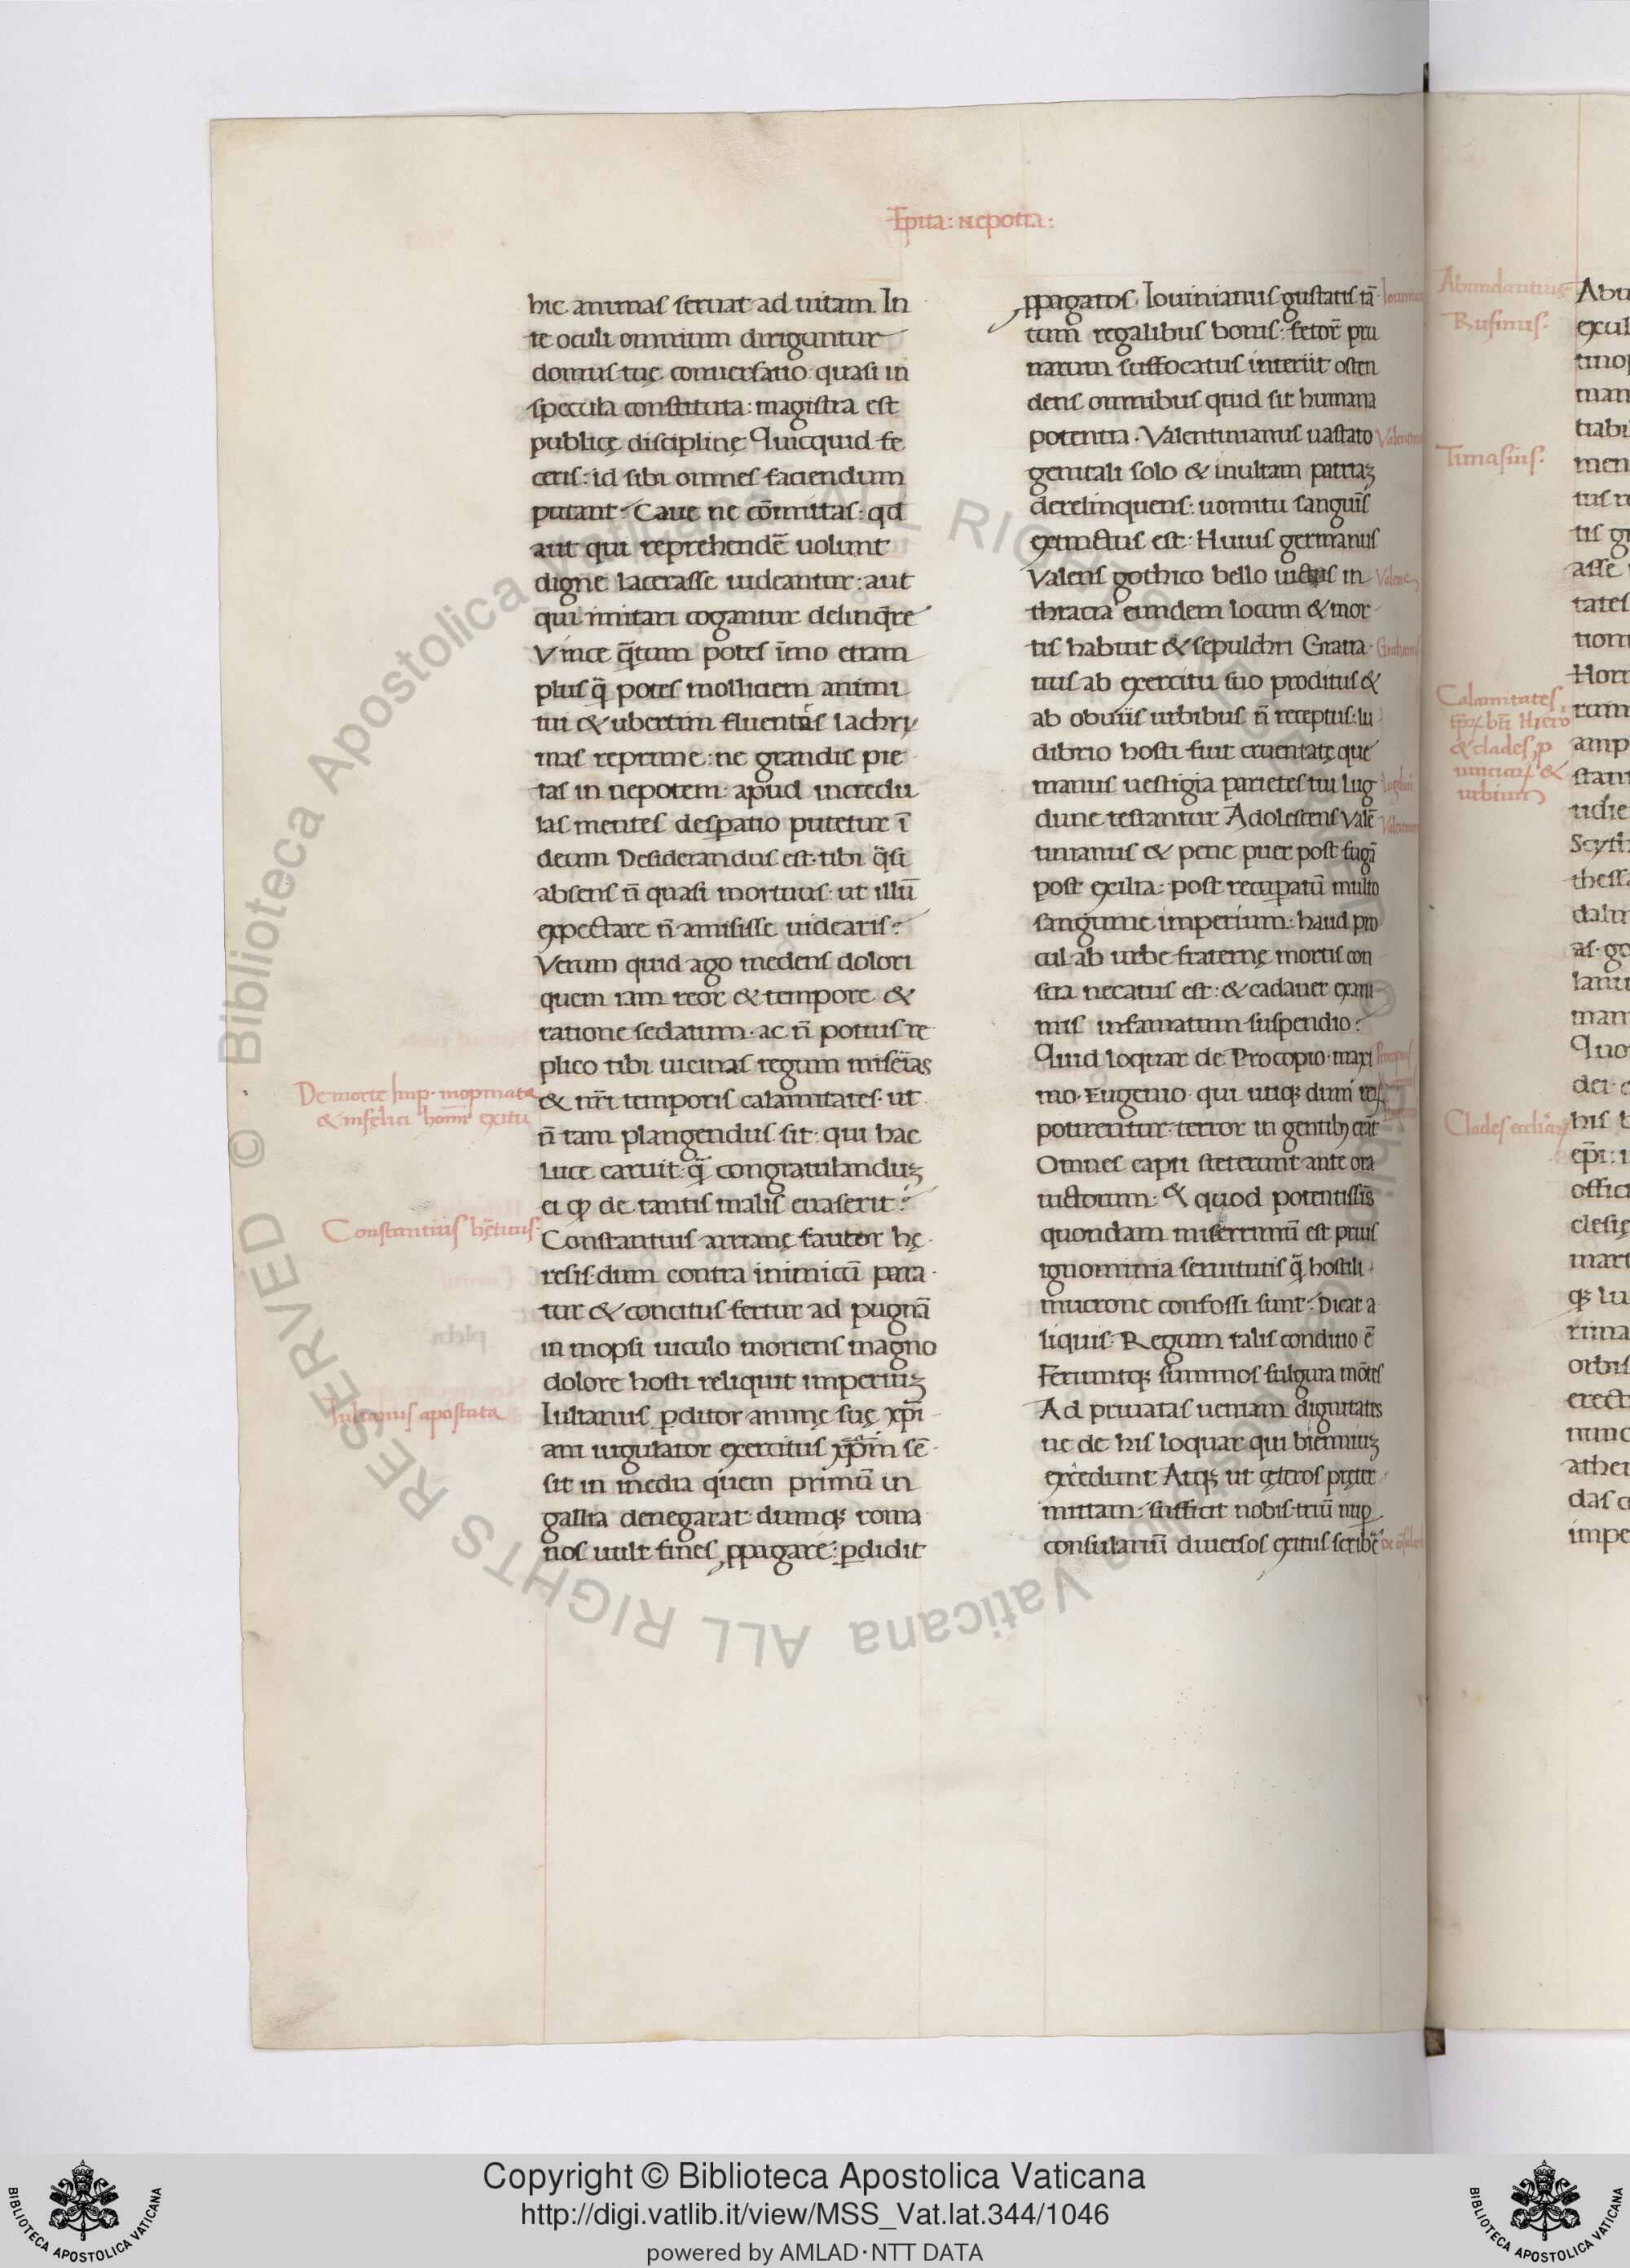 Epita: nepotia:
hic animas seruat ad uitam. In
te oculi omnium diriguntur
domus tuę conuersatio quasi in
specula constituta: magistra est
publicę disciplinę Quicquid fe
ceris: id sibi omnes faciendum
putant. Caue ne cōmittas: qd
aut qui reprehendē uolunt
digne lacerasse uideantur: aut
qui imitari cogantur delinq̄re
Vince q̄tum potes īmo etiam
plus q̄ potes molliciem animi
tui & ubertim fluentes lachry
mas reprime: ne grandis pie
tas in nepotem apud incredu
las mentes despatio putetur ī
deum Desiderandus est tibi q̄si
absens n̄ quasi mortuus: ut illū
expectare n̄ amisisse uidearis:
Verum quid ago medens dolori
quem iam reor & tempore &
ratione sedatum. ac n̄ potius re
plico tibi uicinas regum misēias
& nr̄i temporis calamitates. ut
n̄ tam plangendus sit: qui hac
luce caruit: q̄ congratulanduȝ
ei ꝙ de tantis malis euaserit:
Constantius arrianę fautor hę
resis: dum contra inimicū para
tur & concitus fertur ad pugnā
in mopsi uiculo moriens magno
dolore hosti reliquit imperiuȝ
Iulianus ꝑditor animę suę xp̄i
ani iugulator exercitus xp̄m sē
sit in media quem primū in
gallia denegarat: dumqȝ roma
nos uult fines ꝓpagare: ꝑdidit
De morte Imp. mopmata
& infęlici hom̄ exitu
Constantius hęticus
Iulianus apostata
ꝓpagatos. Iouinianus gustatis tā
tum regalibus bonis: fetor̄ pru
narum suffocatus interiit osten
dens omnibus quid sit humana
potentia. Valentinianus uastato
genitali solo & inultam patriaȝ
derelinquens: uomitu sanguīs
extinctus est: Huius germanus
Valens gothico bello uictus in
thracia eundem locum & mor
tis habuit & sepulchri Gratia
nus ab exercitu suo proditus &
ab obuiis urbibus n̄ receptus: lu
dibrio hosti fuit cruentatęque
manus uestigia parietes tui lug
dune testantur Adolescens Valē
tinianus & pene puer post fugā
post exilia: post recuꝑatū multo
sanguine imperium: haud pro
cul ab urbe fraternę mortis con
scia necatus est: & cadauer exani
mis infamatum suspendio:
Quid loquar de Procopio. maxi
mo. Eugenio. qui utiqȝ dum reꝝ
potirentur terror in gentibȝ erāt
Omnes capti steterunt ante ora
uictorum: & quod potentissīs
quondam miserrimū est prius
ignominia seruitutis q̄ hostili
mucrone confossi sunt. Dicat a
liquis. Regum talis conditio ē
Feriuntqȝ summos fulgura mōtes
Ad priuatas ueniam dignitates
ne de his loquar qui bienniuȝ
excedunt Atqȝ ut cęteros pręter
mittam: sufficit nobis triū nuꝑ
consulariū diuersos exitus scribē
Valens
Gratianus
Procopius
Abundantius
Rufinus.
Timasius.
Calamitates
& clades ꝑ
urbium
Clades
© Biblioteca Apostolica Vaticana ALL RIGHTS RESERVED © Biblioteca Apostolica Vaticana ALL RIGHTS RESERVED
Copyright © Biblioteca Apostolica Vaticana
http://digi.vatlib.it/view/MSS_Vat.lat.344/1046
powered by AMLAD·NTT DATA
BIBLIOTECA APOSTOLICA VATICANA
BIBLIOTECA APOSTOLICA VATICANA